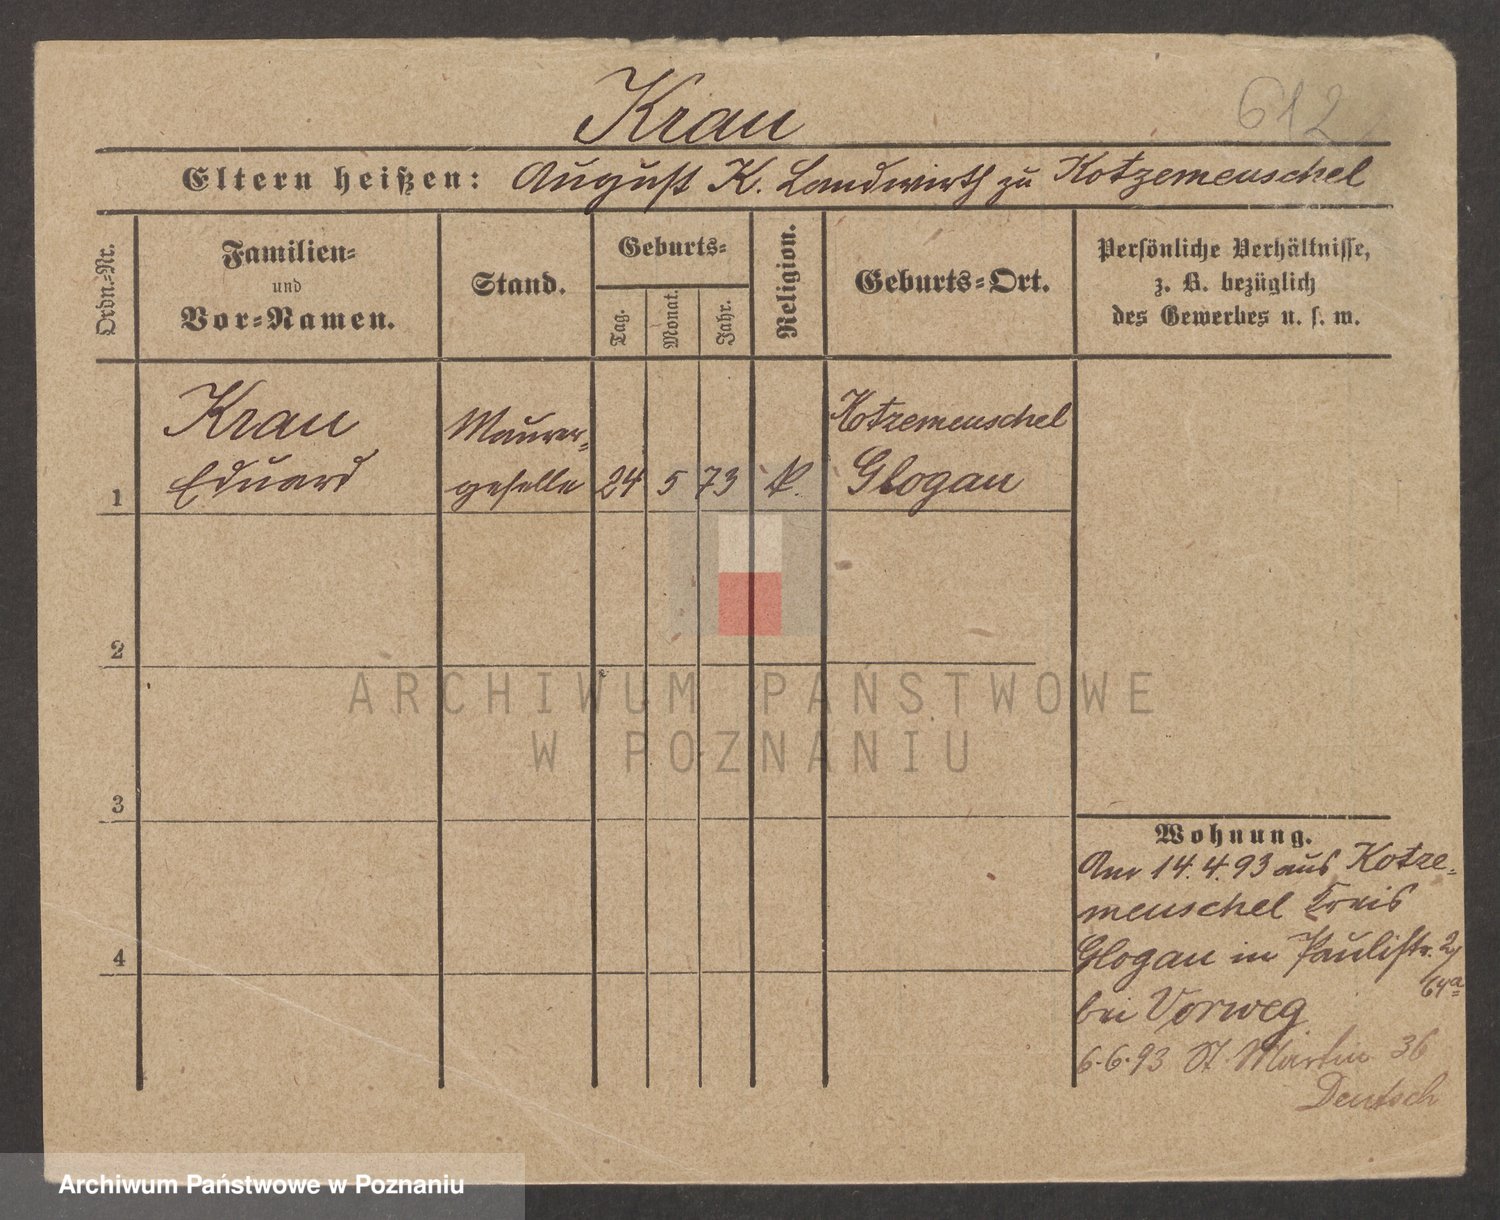 Krau
612
Eltern heißen: August K. Landwirth zu Kotzemeuschel
Ordn.-Nr.
Familien-
und
Vor-Namen.
Stand.
Geburts-
Tag.
Monat.
Jahr.
Religion.
Geburts-Ort.
Persönliche Verhältnisse,
z. B. bezüglich
des Gewerbes u. s. w.
1
Krau
Eduard
Maurer-
geselle
24
5
73
K.
Kotzemeuschel
Glogau
2
3
4
Wohnung.
Am 14.4.93 aus Kotze-
meuschel Kreis
Glogau in Paulistr. 2
64a
bei Vorweg
6.6.93 St. Martin 36
Deutsch
ARCHIWUM PAŃSTWOWE
W POZNANIU
Archiwum Państwowe w Poznaniu